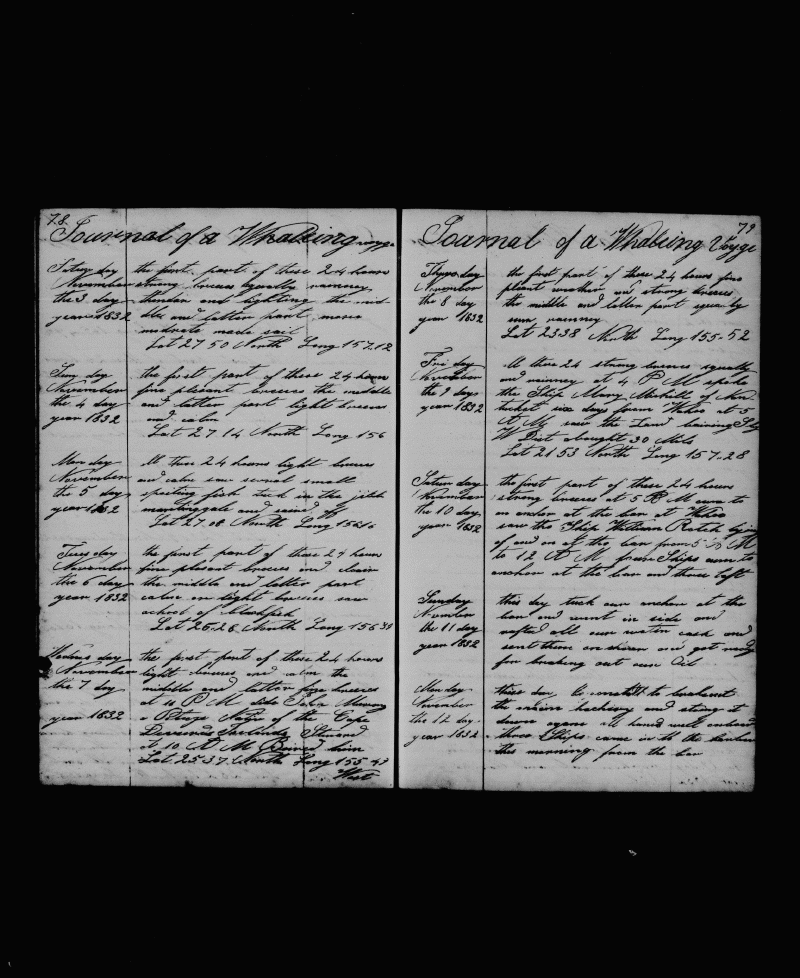 78
Journal of a Whaleing voyge
Satuy day the first part of these 24 hours
November strong breeses squally rainney
the 3 day thunder and lighting the mid
year 1832 dle and latter part more
moderate made sail
Lat 27 50 North Long 157.12
Sun day the first part of these 24 hours
November fine plesent breeses the middle
the 4 day and latter part light breeses
year 1832 and calm
Lat 27 14 North Long 156
Mon day All these 24 hours light breeses
November and calm saw small
the 5 day fish in the
year 1832 martingale and
Lat 27.08 North Long
Tues day the first part of these 24 hours
November fine plesent breeses and clear
the 6 day the middle and latter part
year 1832 calm or light breeses saw
a school of blackfish
Lat 26.26 North Long 156
Wednes day the first part of these 24 hours
November light breeses and calm the
the 7 day middle and latter fine breeses
at 10 P M died John
year 1832 a Native of the Cape
Steward
at 10 A M him
Lat 25 37 North Long 155
West
79
Journal of a Whaleing Voyge
Thurs day the first part of these 24 hours fine
November plesent weather and strong breeses
the 8 day the middle and latter part
year 1832 rainney
Lat 23 38 North Long 155-52
Fri day All these 24 strong breeses squally
November and rainney at 4 P M spoke
the 9 day the Ship Mary Michell of Nan
year 1832 tucket six days from Wahoo at 5
A M saw the Land baring
W Dist abought 30 Mils
Lat 21 53 North Long 157.28
Satur day the first part of these 24 hours
November strong breeses at 5 P M cum to
the 10 day an anchor at the bar at Wahoo
year 1832 saw the Ship William Rotch lying
of and on at the bar from 5
to 12 A M four Ships cum to
anchor at the bar and three left
Sunday this day tuck our anchor at the
November bar and went in side and
the 11 day rafted all our water cask and
year 1832 sent them on shore and got ready
for breaking out our Oil
Mon day this day
November the and
the 12 day down again all hands well
year 1832 three Ships came in to the harbour
this morning from the bar